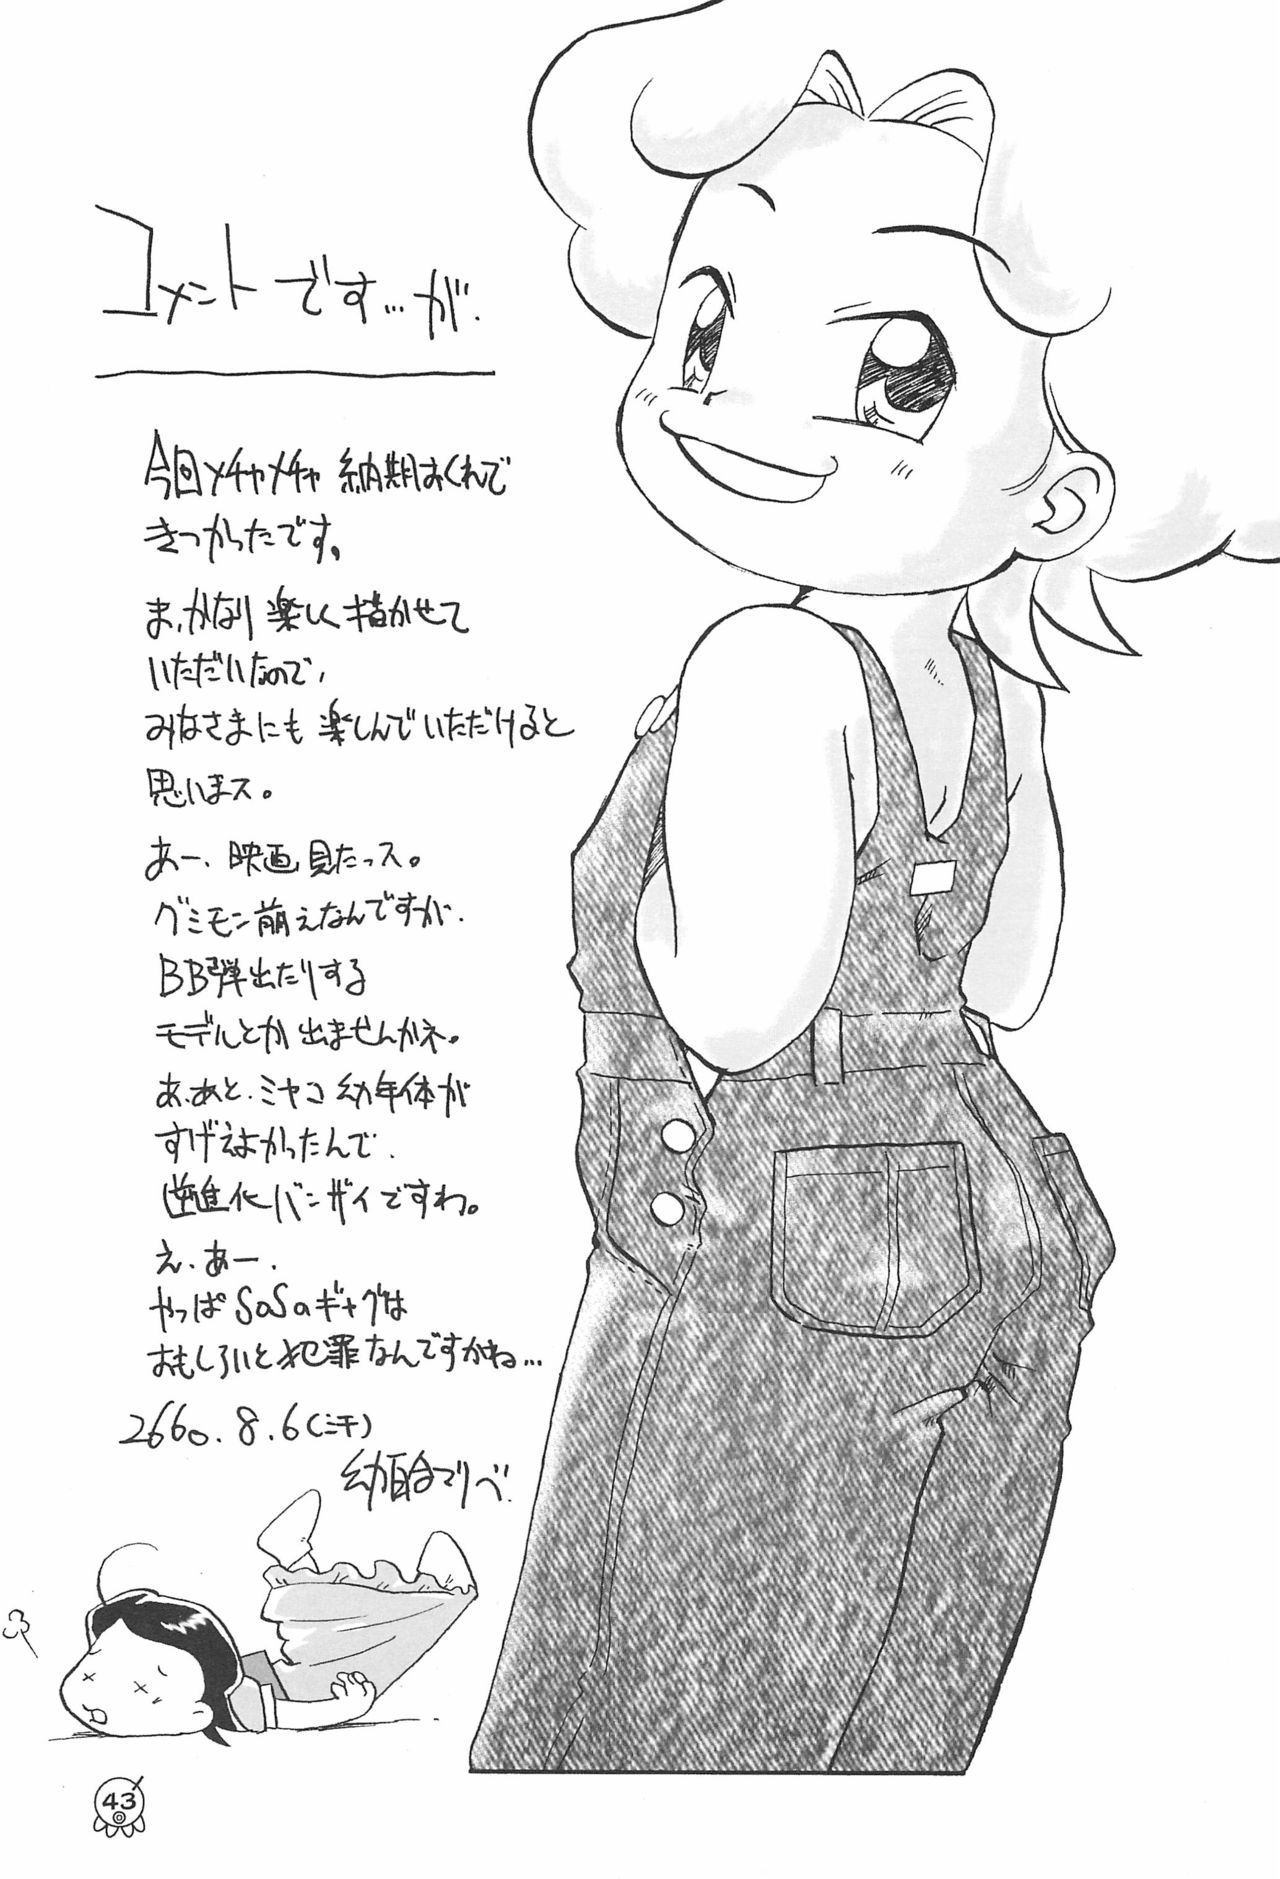 コメントです…が.
今回メチャメチャ 納期おくれで
きつかったです。
ま、かなり 楽しく描かせて
いただいたので、
みなさまにも 楽しんでいただけると
思いまス。
あー、映画見たっス。
グミモン萌えなんですが.
BB弾出たりする
モデルとか 出ませんかネ。
あ、あと、ミヤコ 幼年体が
すげえよかったんで.
逆進化バンザイですわ。
え、あー.
やっぱSaSaギャグは
おもしろいと犯罪なんですかね…
2660.8.6(汗)
43